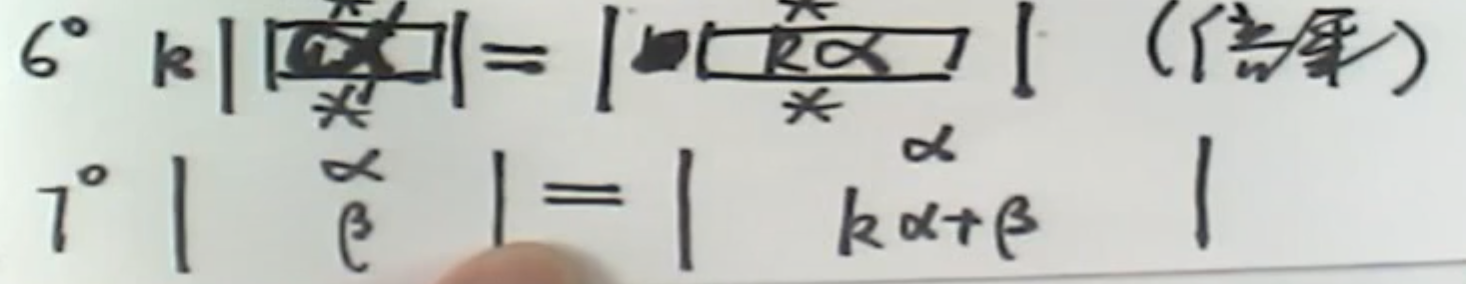 6° k| * α * | = | * kα * | (倍乘)
7° | α β | = | α kα+β |